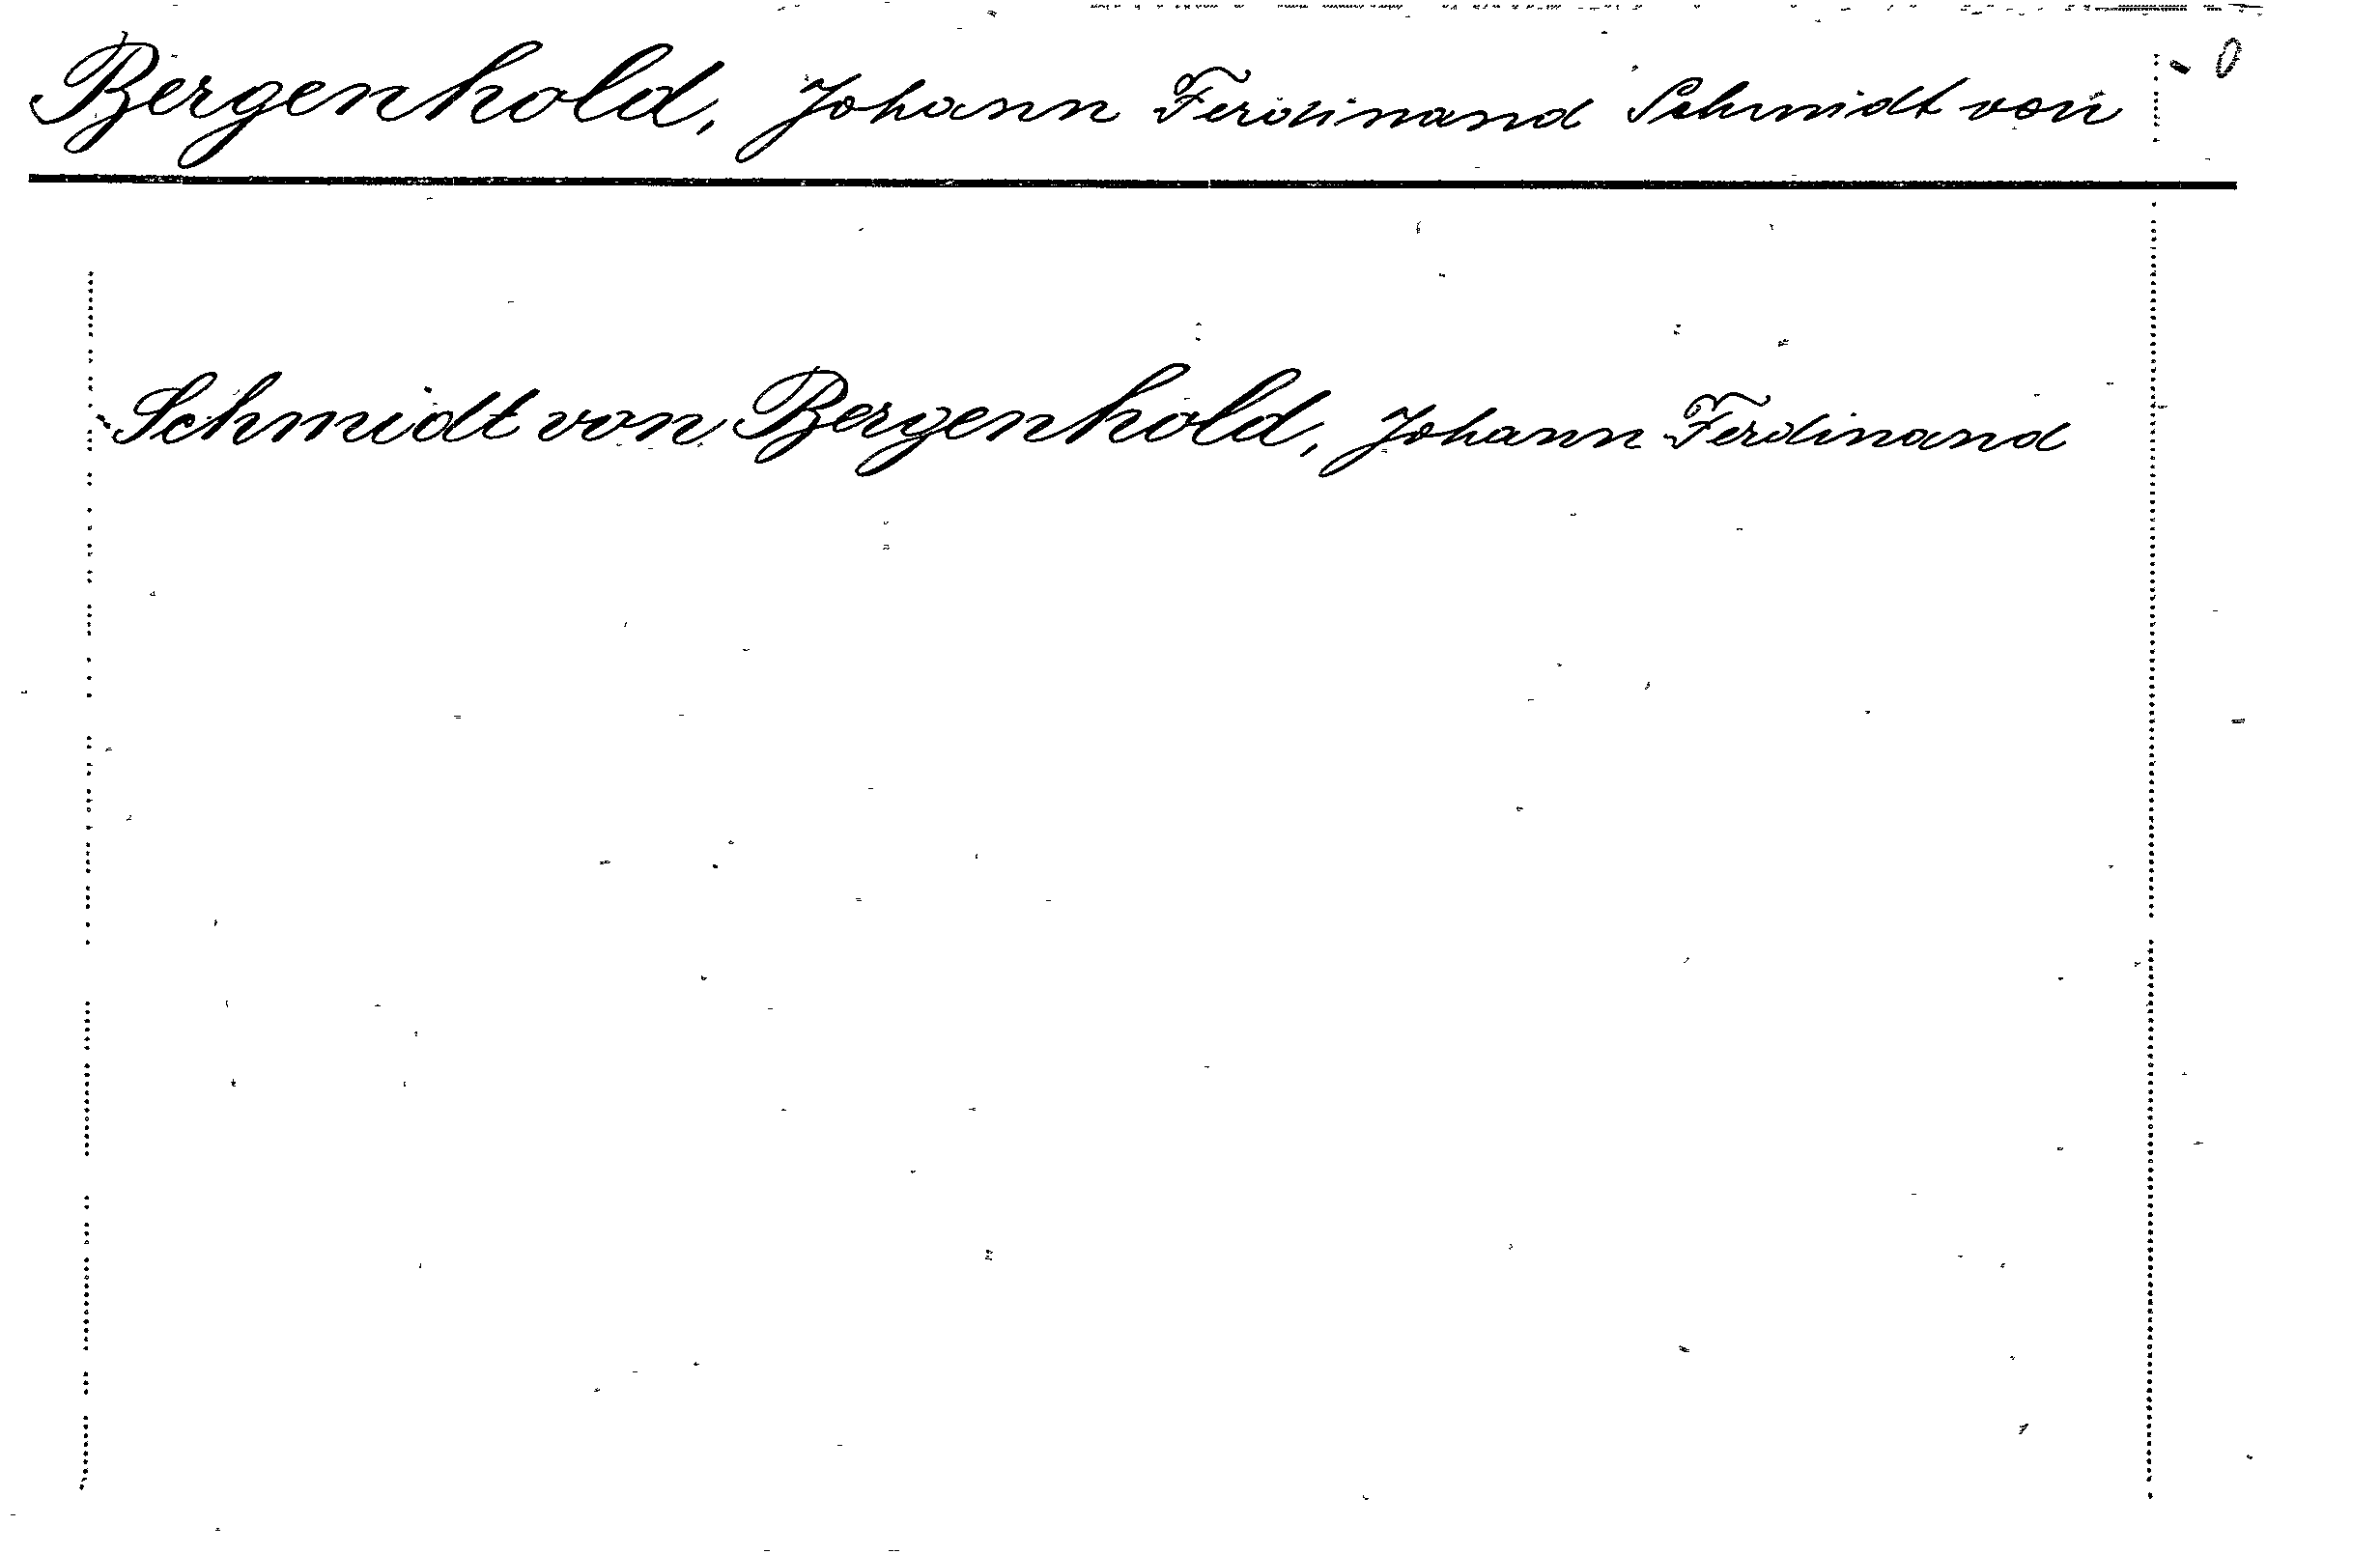 Bergenhold, Johann Ferdinand Schmidt von
Schmidt von Bergenhold, Johann Ferdinand